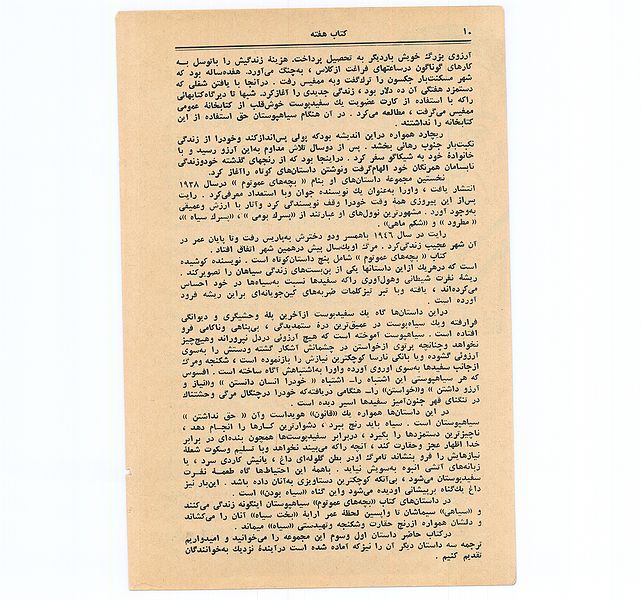 ۱۰
کتاب هفته
آرزوی بزرگ خویش باردیگر به تحصیل پرداخت. هزینهٔ زندگیش را باتوسل بـه
کارهای گوناگون درساعتهای فراغت ازکلاس ، به‌چنگ می‌آورد. هفده‌ساله بود که
شهر مسکنت‌بار جکسون را ترک‌گفت وبه ممفیس رفت . درآنجا با یافتن شغلی که
دستمزد هفتگی آن ده دلار بود ، زندگی جدیدی را آغازکرد. شبها تا دیرگاه‌کتابهائی
راکه با استفاده از کارت عضویت یك سفیدپوست خوش‌قلب از کتابخانهٔ عمومی
ممفیس می‌گرفت ، مطالعه می‌کرد . در آن هنگام سیاهپوستان حق استفاده از این
کتابخانه را نداشتند .
ریچارد همواره دراین اندیشه بودکه پولی پس‌اندازکند وخودرا از زندگی
نکبت‌بار جنوب رهائی بخشد . پس از دوسال تلاش مداوم به‌این آرزو رسید و با
خانوادهٔ خود به شیکاگو سفر کرد . دراینجا بود که از رنجهای گذشته خودوزندگی
نابسامان همرنگان خود الهام‌گرفت ونوشتن داستان‌های کوتاه راآغاز کرد.
نخستین مجموعه داستان‌های او بنام « بچه‌های عموتوم » درسال ۱۹۳۸
انتشار یافت ، واورا به‌عنوان یك نویسنده جوان وبا استعداد معرفی‌کرد . رایت
پس‌از این پیروزی همهٔ وقت خودرا وقف نویسندگی کرد وآثار با ارزش وعمیقی
به‌وجود آورد . مشهورترین نوول‌های او عبارتند از «پسرك بومی » ، «پسرك سیاه »،
« مطرود » و «شکم ماهی» .
رایت در سال ۱۹۴۶ باهمسر ودو دخترش به‌پاریس رفت وتا پایان عمر در
آن شهر عجیب زندگی‌کرد . مرگ اویك‌سال پیش درهمین شهر اتفاق افتاد .
کتاب « بچه‌های عموتوم » شامل پنج داستان‌کوتاه است . نویسنده کوشیده
است که درهریك ازاین داستانها یکی از بن‌بست‌های زندگی سیاهان را تصویرکند .
ریشهٔ نفرت شیطانی وهول‌آوری راکه سفیدها نسبت به‌سیاه‌ها در خود احساس
می‌کرده‌اند ، یافته وبا تبر تیزکلمات ضربه‌های کین‌جویانه‌ای براین ریشه فرود
آورده است .
دراین داستان‌ها گاه یك سفیدپوست ازآخرین پلهٔ وحشیگری و دیوانگی
فرارفته ویك سیاه‌پوست در عمیق‌ترین درهٔ ستمدیدگی ، بی‌پناهی وناکامی فرو
افتاده است . سیاهپوست آموخته است که هیچ آرزوئی دردل نپروراند وهیچ‌چیز
نخواهد وچنانچه پرتوی ازخواستن در چشمانش آشکار گشته ودستش را به‌سوی
آرزوئی گشوده وبا بانگی نارسا کوچکترین نیازش را بازنموده است ، شکنجه ومرگ
ازجانب سفیدها به‌سوی اوروی آورده واورا به‌اشتباهش آگاه ساخته است . افسوس
که هر سیاهپوستی این اشتباه راـ اشتباه « خودرا انسان دانستن » و«نیاز و
آرزو داشتن » و«خواستن» راـ هنگامی دریافته‌که خودرا درچنگال مرگی وحشتناك
در تنگنای قهر جنون‌آمیز سفیدها اسیر دیده است .
در این داستان‌ها همواره یك «قانون» هویداست وآن « حق نداشتن »
سیاهپوستان است . سیاه باید رنج ببرد ، دشوارترین کـارها را انجـام دهد ،
ناچیزترین دستمزدها را بگیرد ، دربرابر سفیدپوست‌ها همچون بنده‌ای در برابر
خدا اظهار عجز وحقارت کند ، آنچه راکه می‌بیند نخواهد وبا تسلیم وسکوت شعلهٔ
نیازهایش را فرو بنشاند تامرگ اودر بطن گلوله‌ای داغ ، یانیش کاردی سرد ، یا
زبانه‌های آتشی انبوه به‌سویش نیاید . باهمهٔ این احتیاط‌ها گاه طعمـهٔ نفـرت
سفیدپوستان می‌شود ، بی‌آنکه کوچکترین دستاویزی به‌آنان داده باشد . این‌بار نیز
داغ یك‌گناه برپیشانی اودیده می‌شود واین گناه «سیاه بودن» است .
در داستان‌های کتاب «بچه‌های عموتوم» سیاهپوستان اینگونه زندگی می‌کنند
و «سیاهی» سیماشان تا واپسین لحظهٔ عمر ارابهٔ «بخت سیاه» آنان را می‌کشاند
و دلشان همواره ازرنج حقارت وشکنجه وتهیدستی «سیاه» میماند .
درکتاب حاضر داستان اول وسوم این مجموعه را می‌خوانید و امیدواریم
ترجمه سه داستان دیگر آن را نیزکه آماده شده است درآیندهٔ نزدیك به‌خوانندگان
تقدیم کنیم .